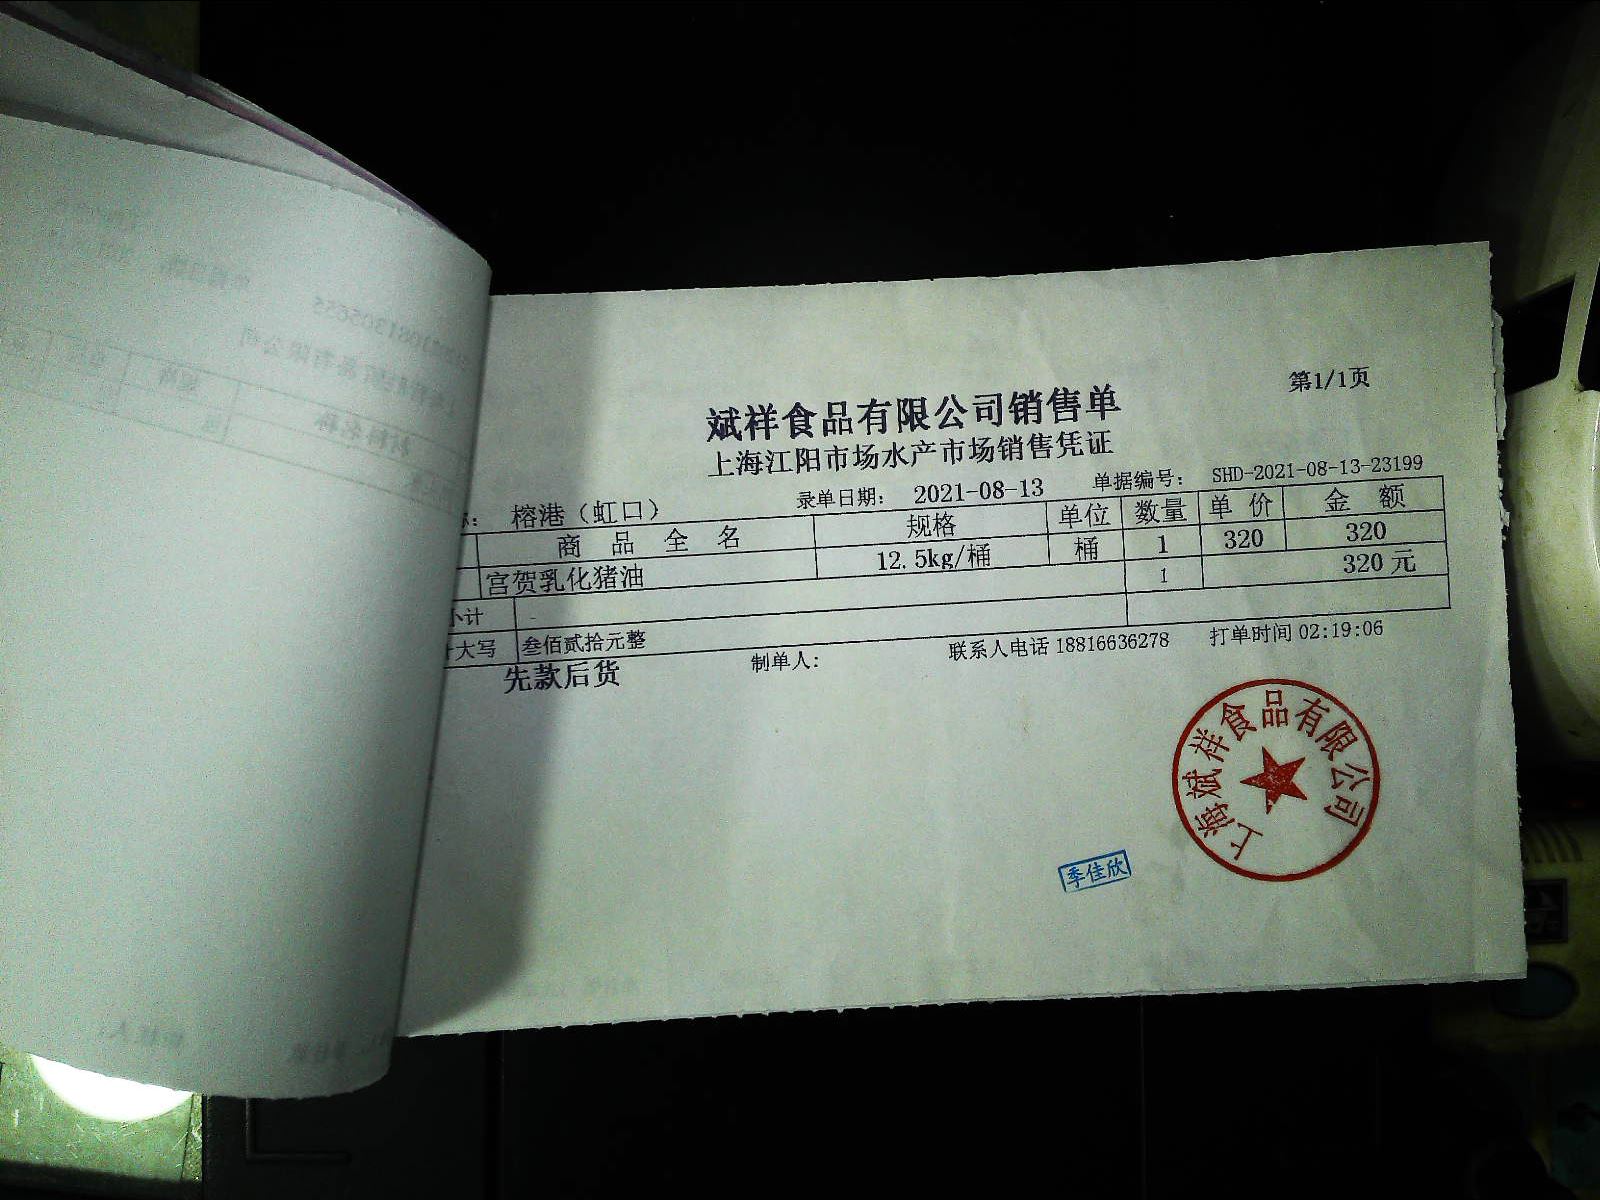 第1/1页
斌祥食品有限公司销售单
上海江阳市场水产市场销售凭证
榕港（虹口） 录单日期： 2021-08-13 单据编号： SHD-2021-08-13-23199
商品全名 规格 单位 数量 单价 金额
宫贺乳化猪油 12.5kg/桶 桶 1 320 320
小计 1 320元
大写 叁佰贰拾元整
先款后货 制单人： 联系人电话 18816636278 打单时间 02:19:06
上海斌祥食品有限公司
季佳欣